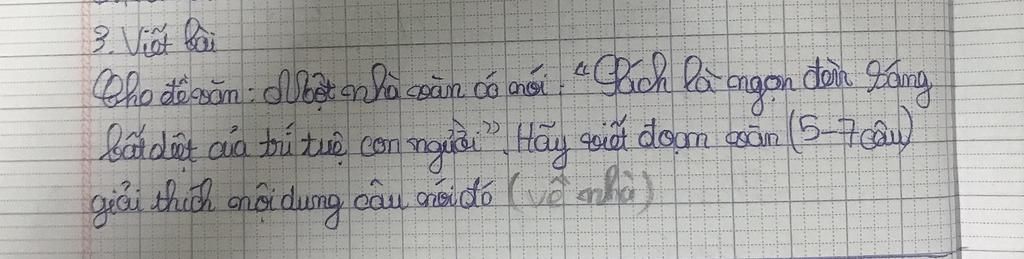 3. Viết bài
Cho đề văn: Một nhà văn có nói: "Sách là ngọn đèn sáng
bất diệt của trí tuệ con người". Hãy viết đoạn văn (5-7 câu)
giải thích nội dung câu nói đó (về nhà)